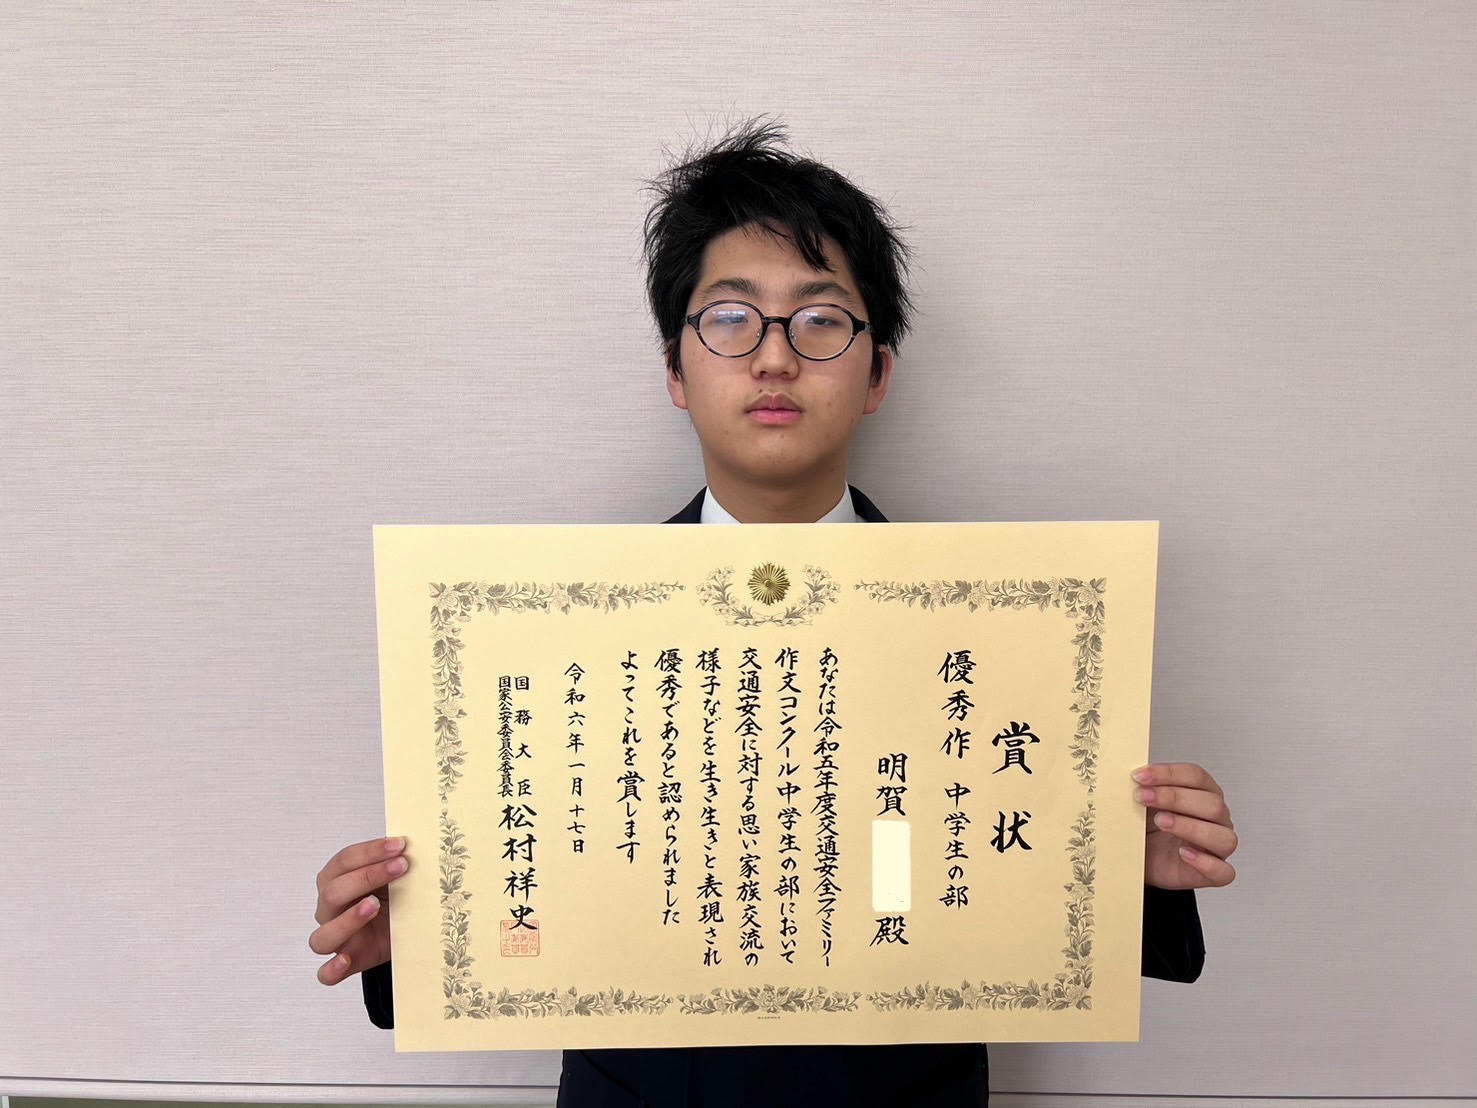 賞状
優秀作 中学生の部
明賀 殿
あなたは令和五年度交通安全ファミリー
作文コンクール中学生の部において
交通安全に対する思い家族交流の
様子などを生き生きと表現され
優秀であると認められました
よってこれを賞します
令和六年一月十七日
国務大臣
国家公安委員会委員長
松村祥史